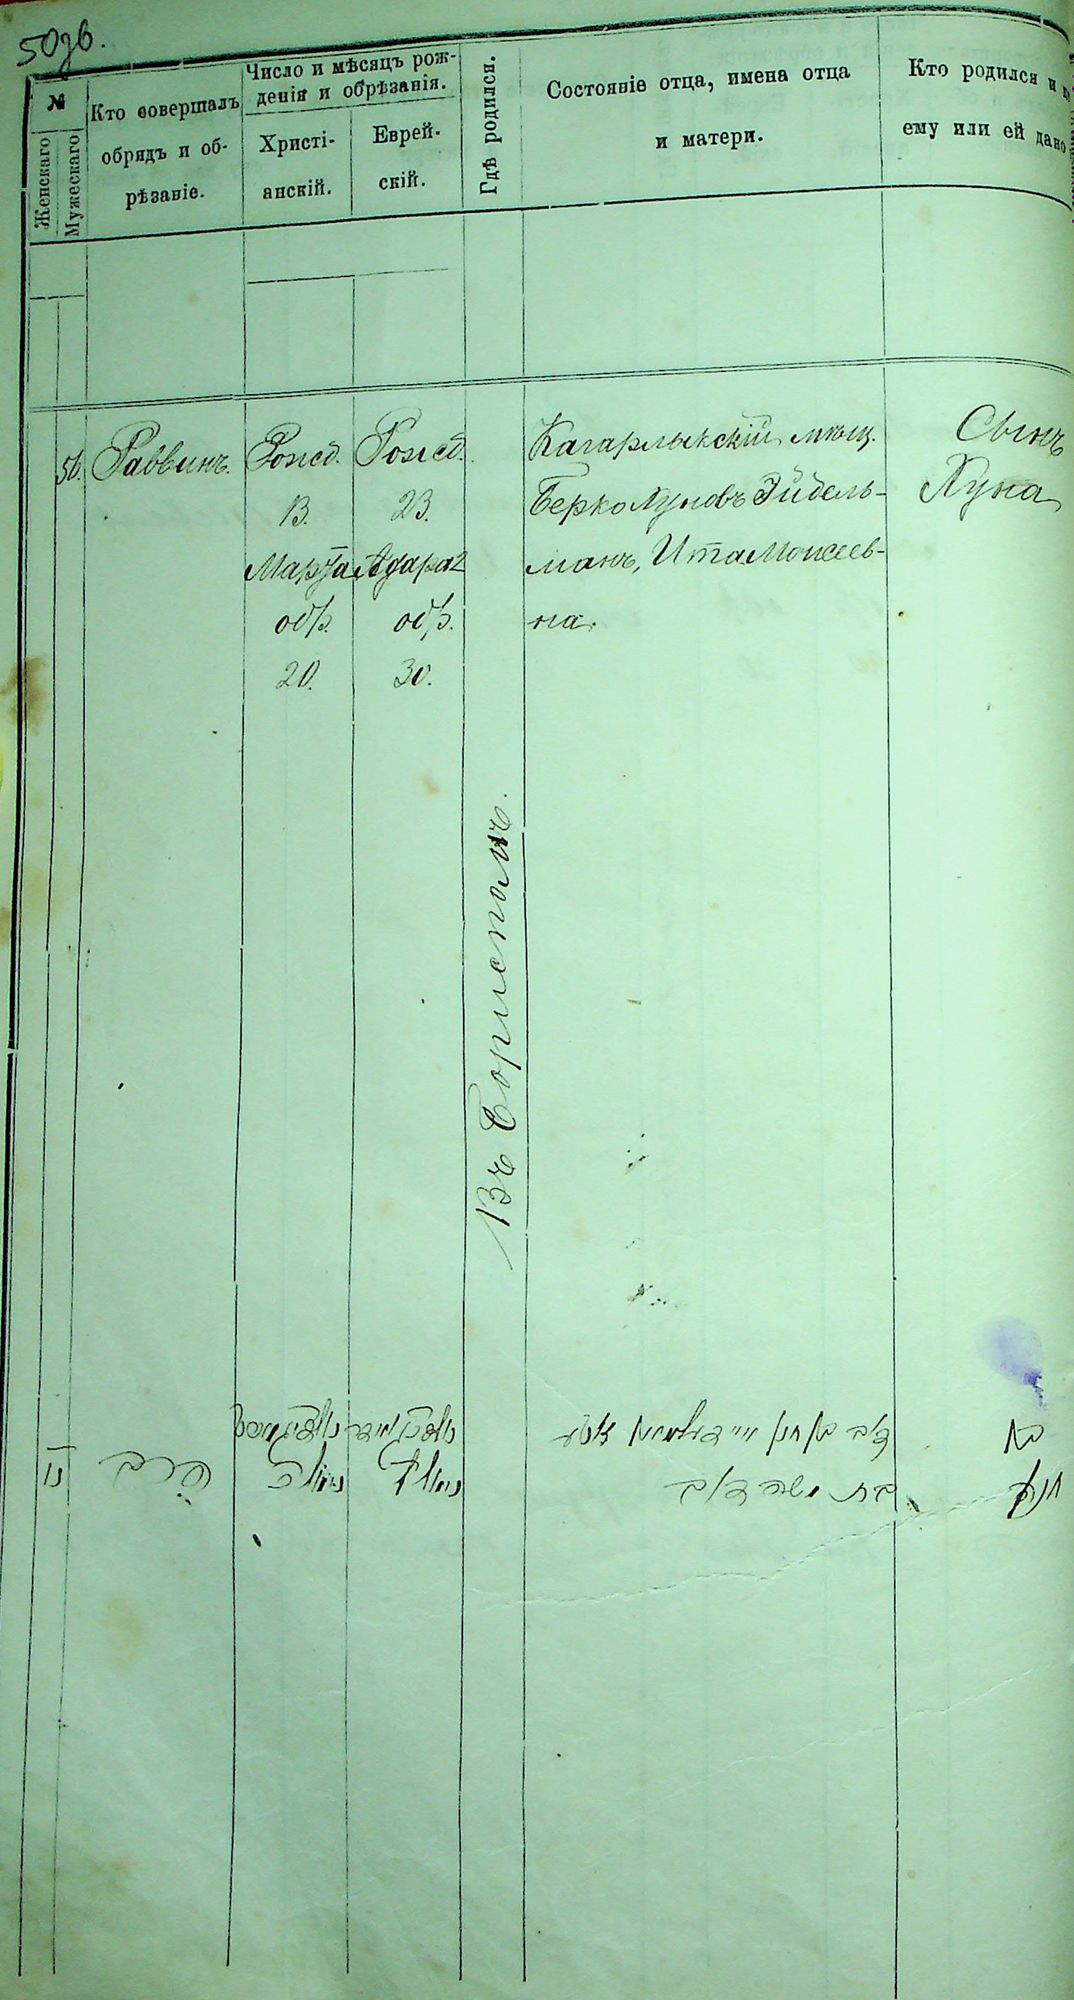 50зв.
№
Женскаго
Мужескаго
Кто совершалъ
обрядъ и об-
рѣзаніе.
Число и мѣсяцъ рож-
денія и обрѣзанія.
Христі-
анскій.
Еврей-
скій.
Гдѣ родился.
Состояніе отца, имена отца
и матери.
Кто родился и
ему или ей дано
56.
Раввинъ.
Рожд.
13.
Марта
обр.
20.
Рожд.
23.
Адара 2
обр.
30.
Въ Борисполѣ.
Кагарлыкскій мѣщ.
Берко Хуновъ Эйдель-
манъ, Ита Моисеев-
на.
Сынъ
Хуна
נו
הרב
בן